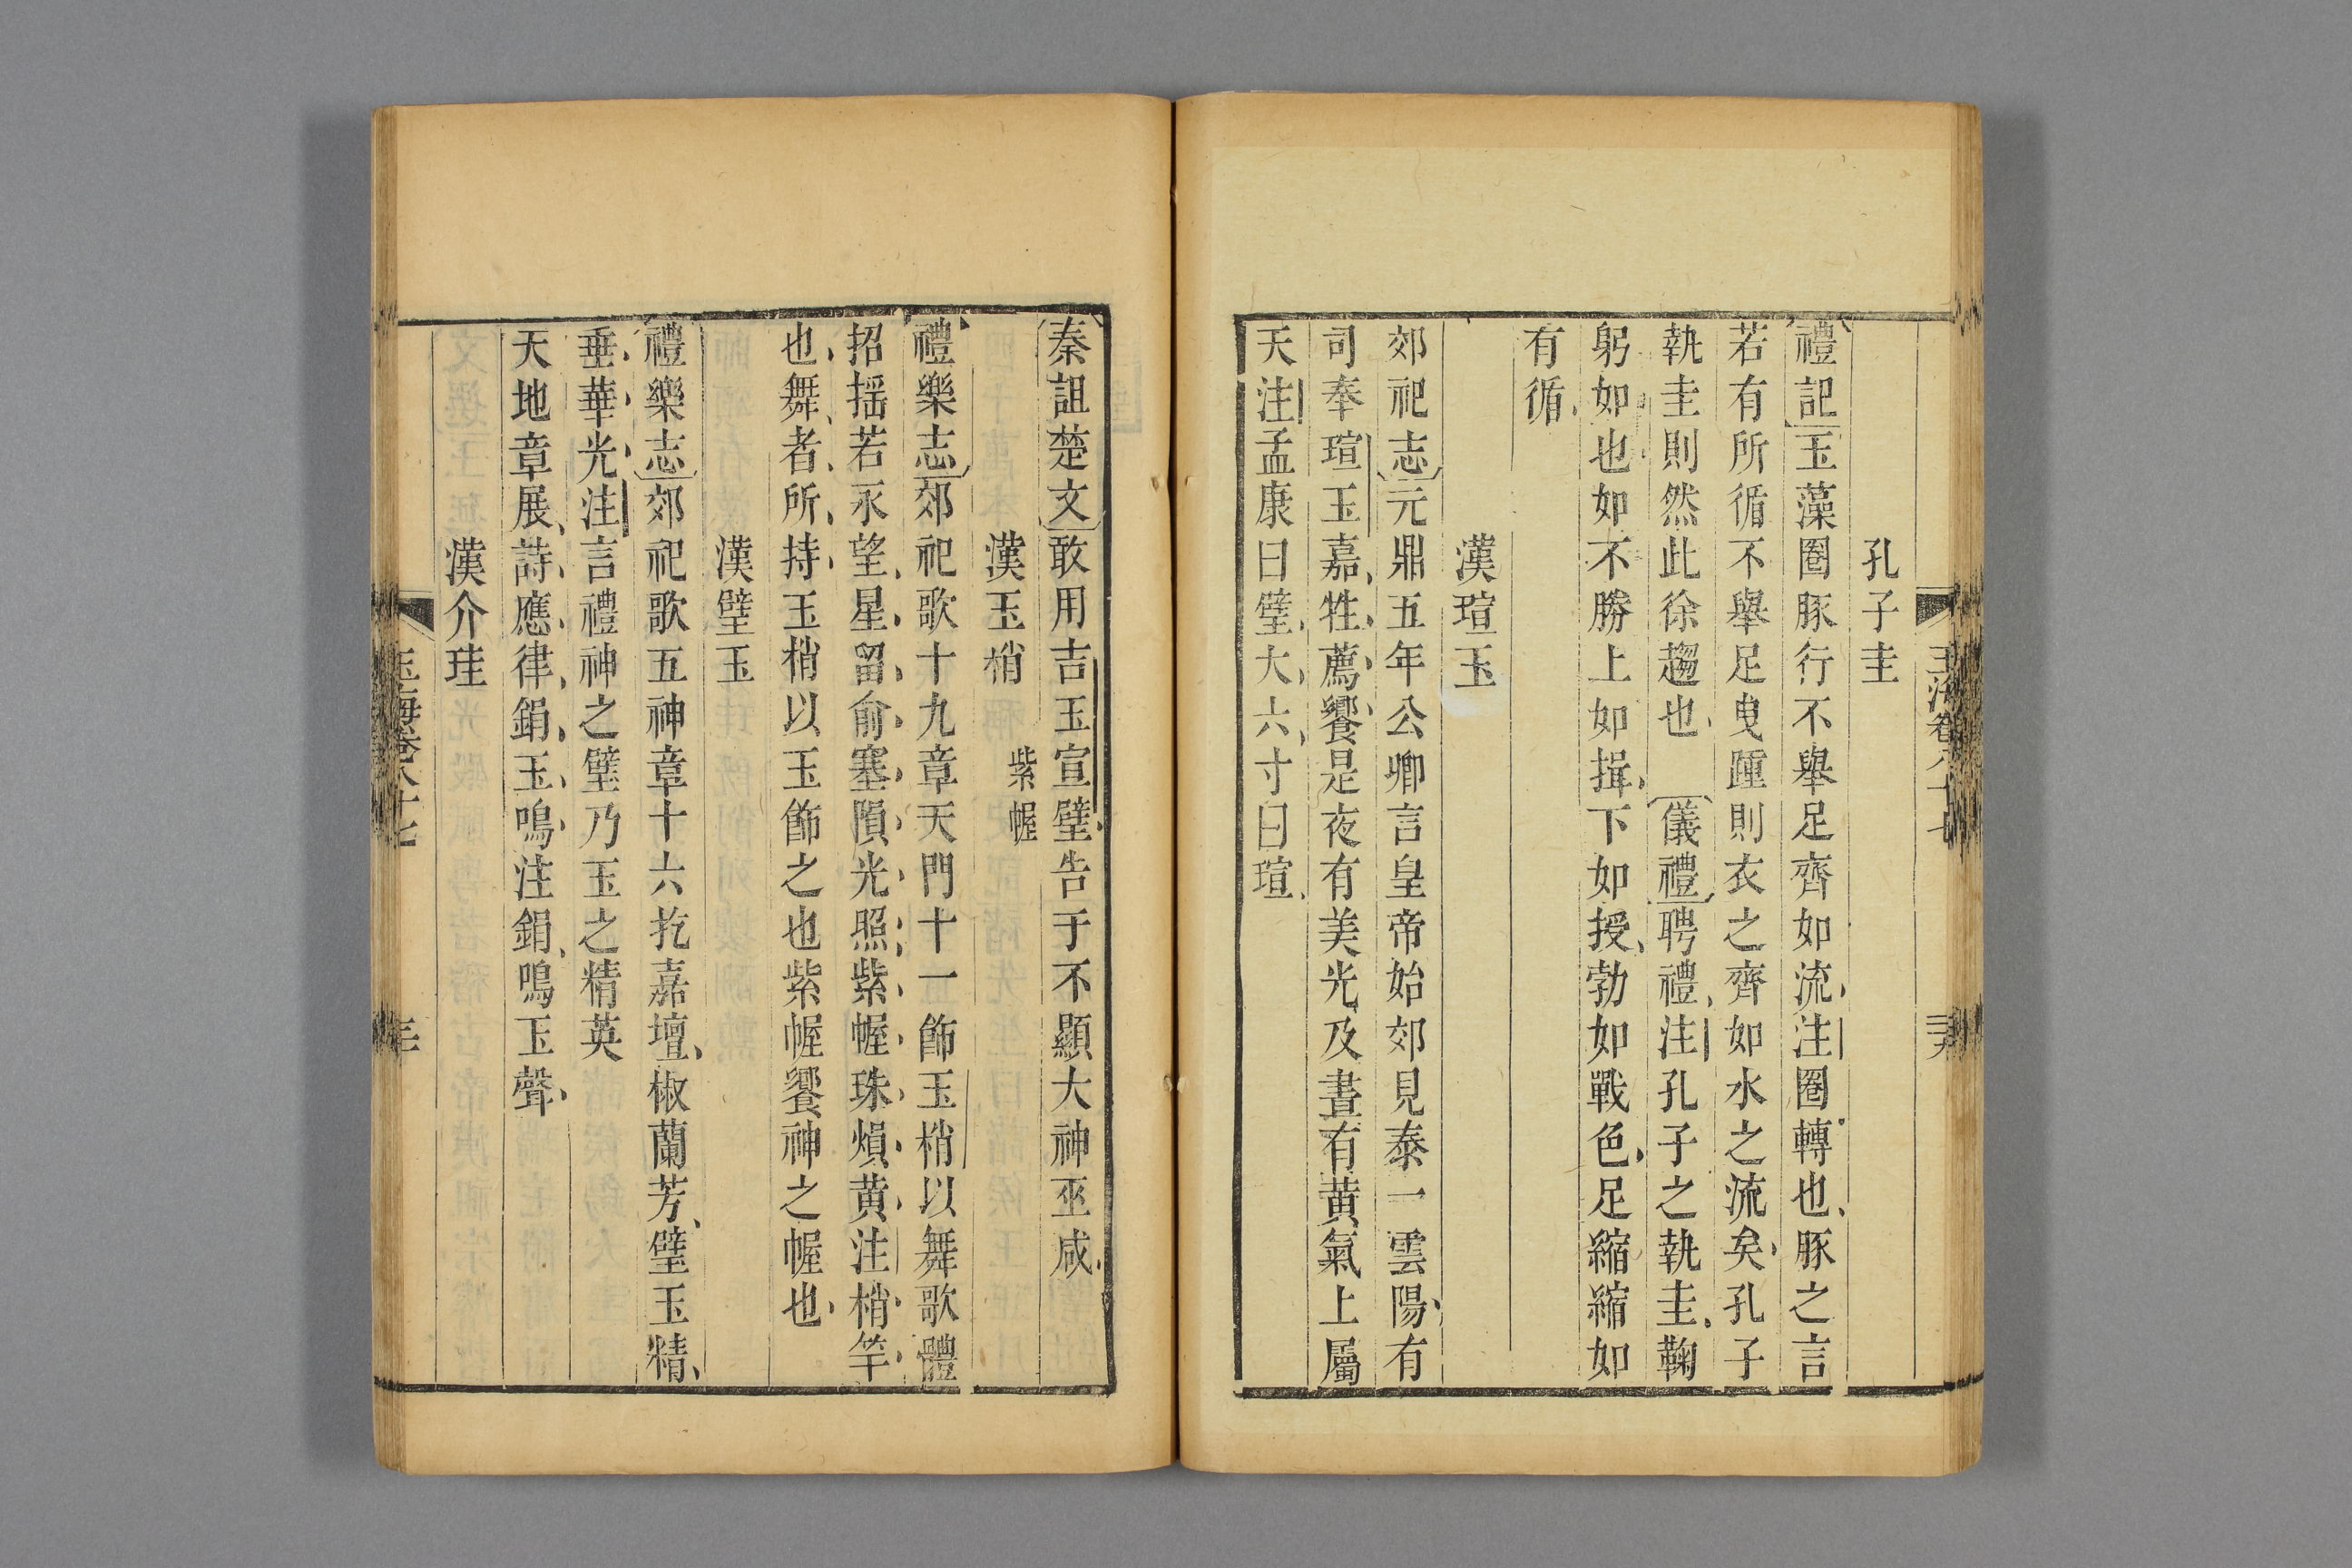 玉海卷八十七
孔子圭
禮記玉藻圈豚行不舉足齊如流注圈轉也豚之言
若有所循不舉足曳踵則衣之齊如水之流矣孔子
執圭則然此徐趨也 儀禮聘禮注孔子之執圭鞠
躬如也如不勝上如揖下如授勃如戰色足縮縮如
有循
漢瑄玉
郊祀志元鼎五年公卿言皇帝始郊見泰一雲陽有
司奉瑄玉嘉牲薦饗是夜有美光及晝有黃氣上屬
天注孟康曰璧大六寸曰瑄
秦詛楚文敢用吉玉宣璧告于不顯大神巫咸
漢玉梢 紫幄
禮樂志郊祀歌十九章天門十一飾玉梢以舞歌體
招搖若永望星留俞塞隕光照紫幄珠熉黃注梢竿
也舞者所持玉梢以玉飾之也紫幄饗神之幄也
漢璧玉
禮樂志郊祀歌五神章十六扢嘉壇椒蘭芳璧玉精
垂華光注言禮神之璧乃玉之精英
天地章展詩應律鋗玉鳴注鋗鳴玉聲
漢介珪
玉海卷八十七